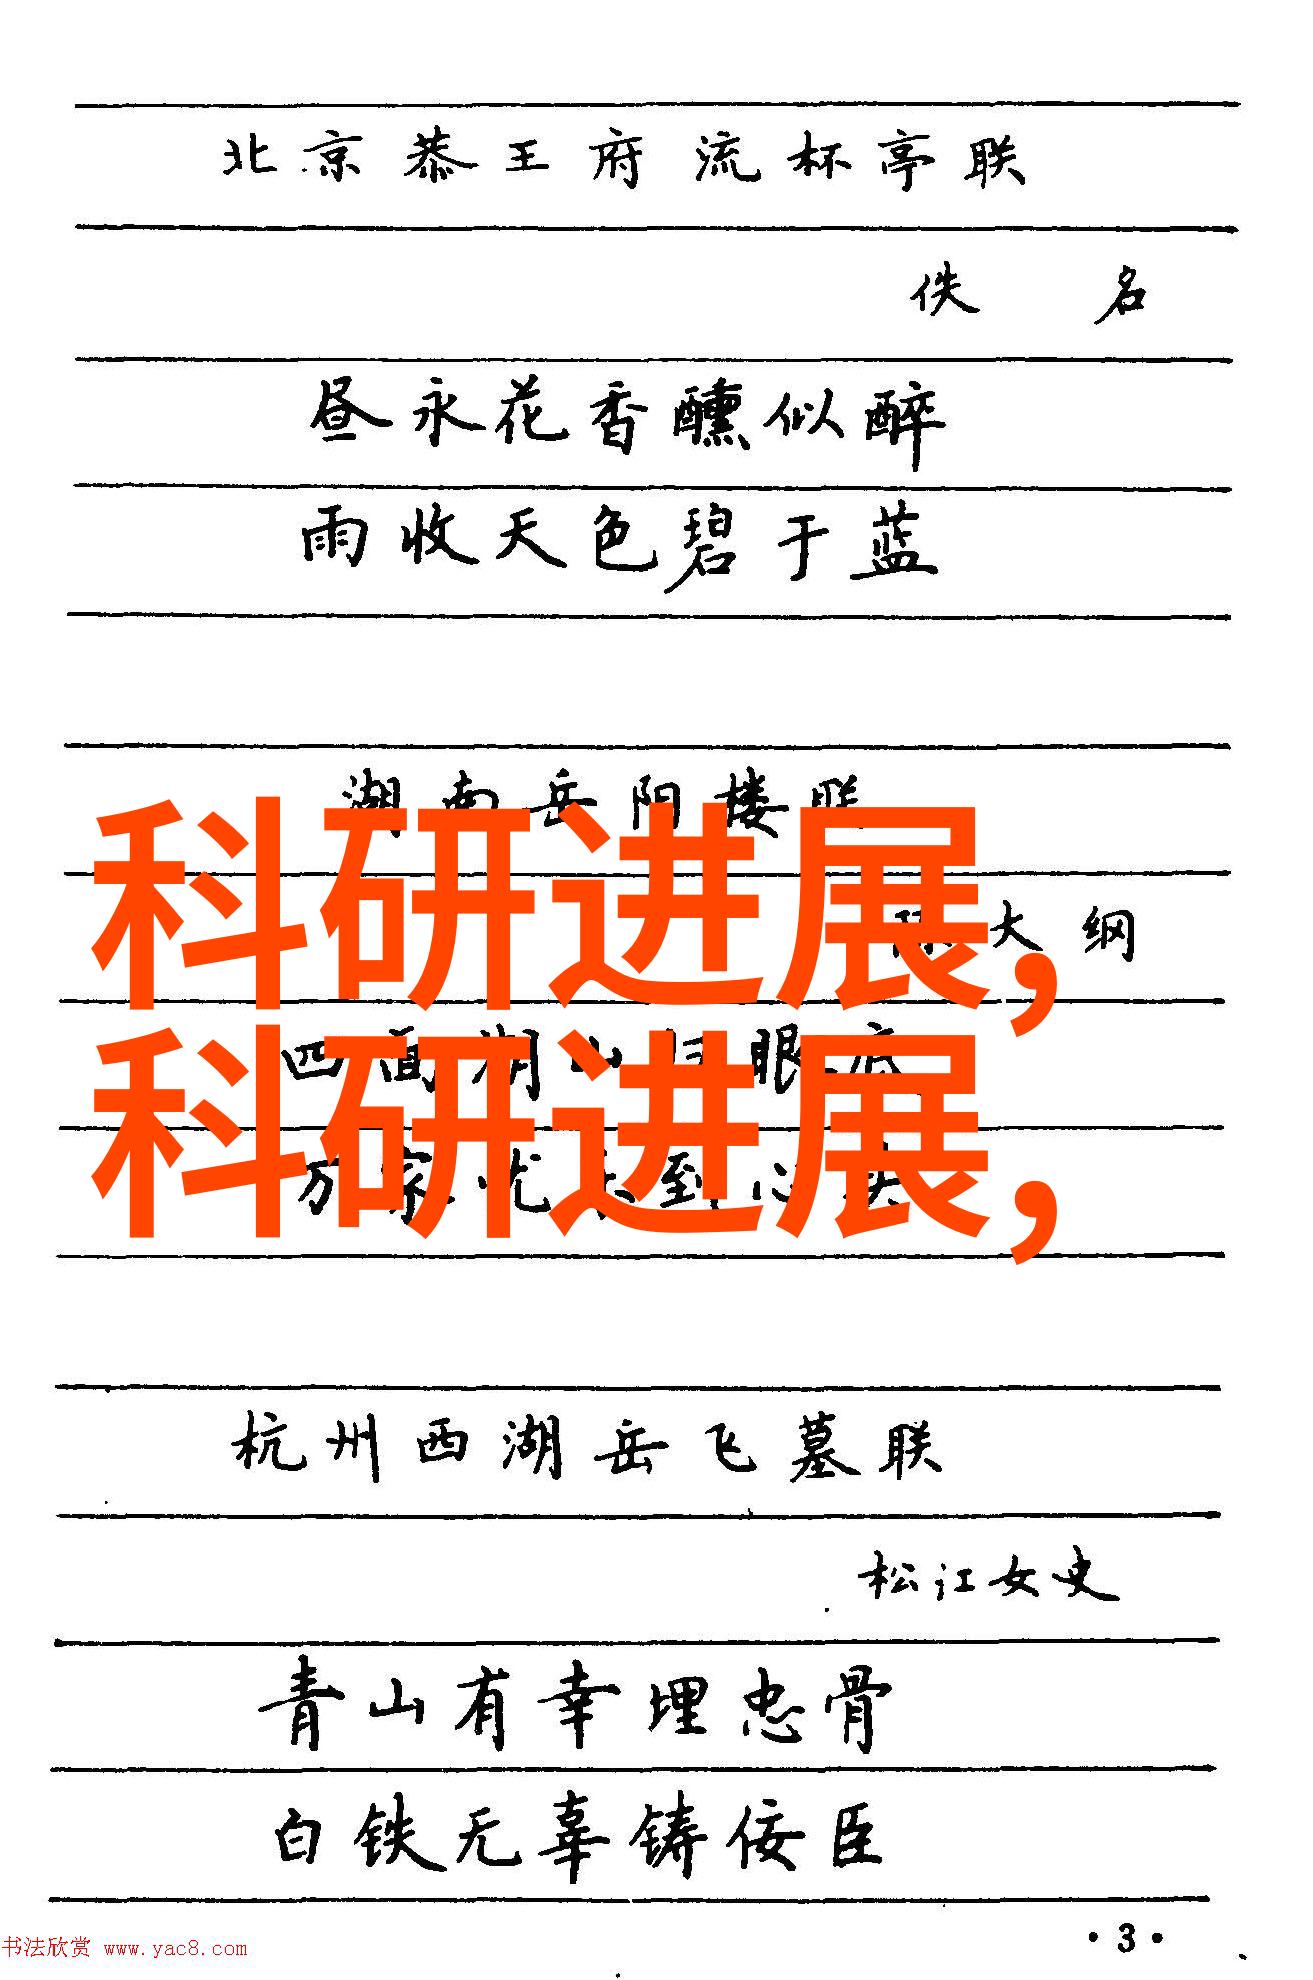 北京恭王府流杯亭联
佚名
昼永花香醺似醉
雨收天色碧于蓝
湖南岳阳楼联
陈大纲
科研进展,
四面湖山归眼底
科研进展,
万家忧乐到心头
杭州西湖岳飞墓联
松江女史
青山有幸埋忠骨
白铁无辜铸佞臣
·3·
书法欣赏 www.yac8.com